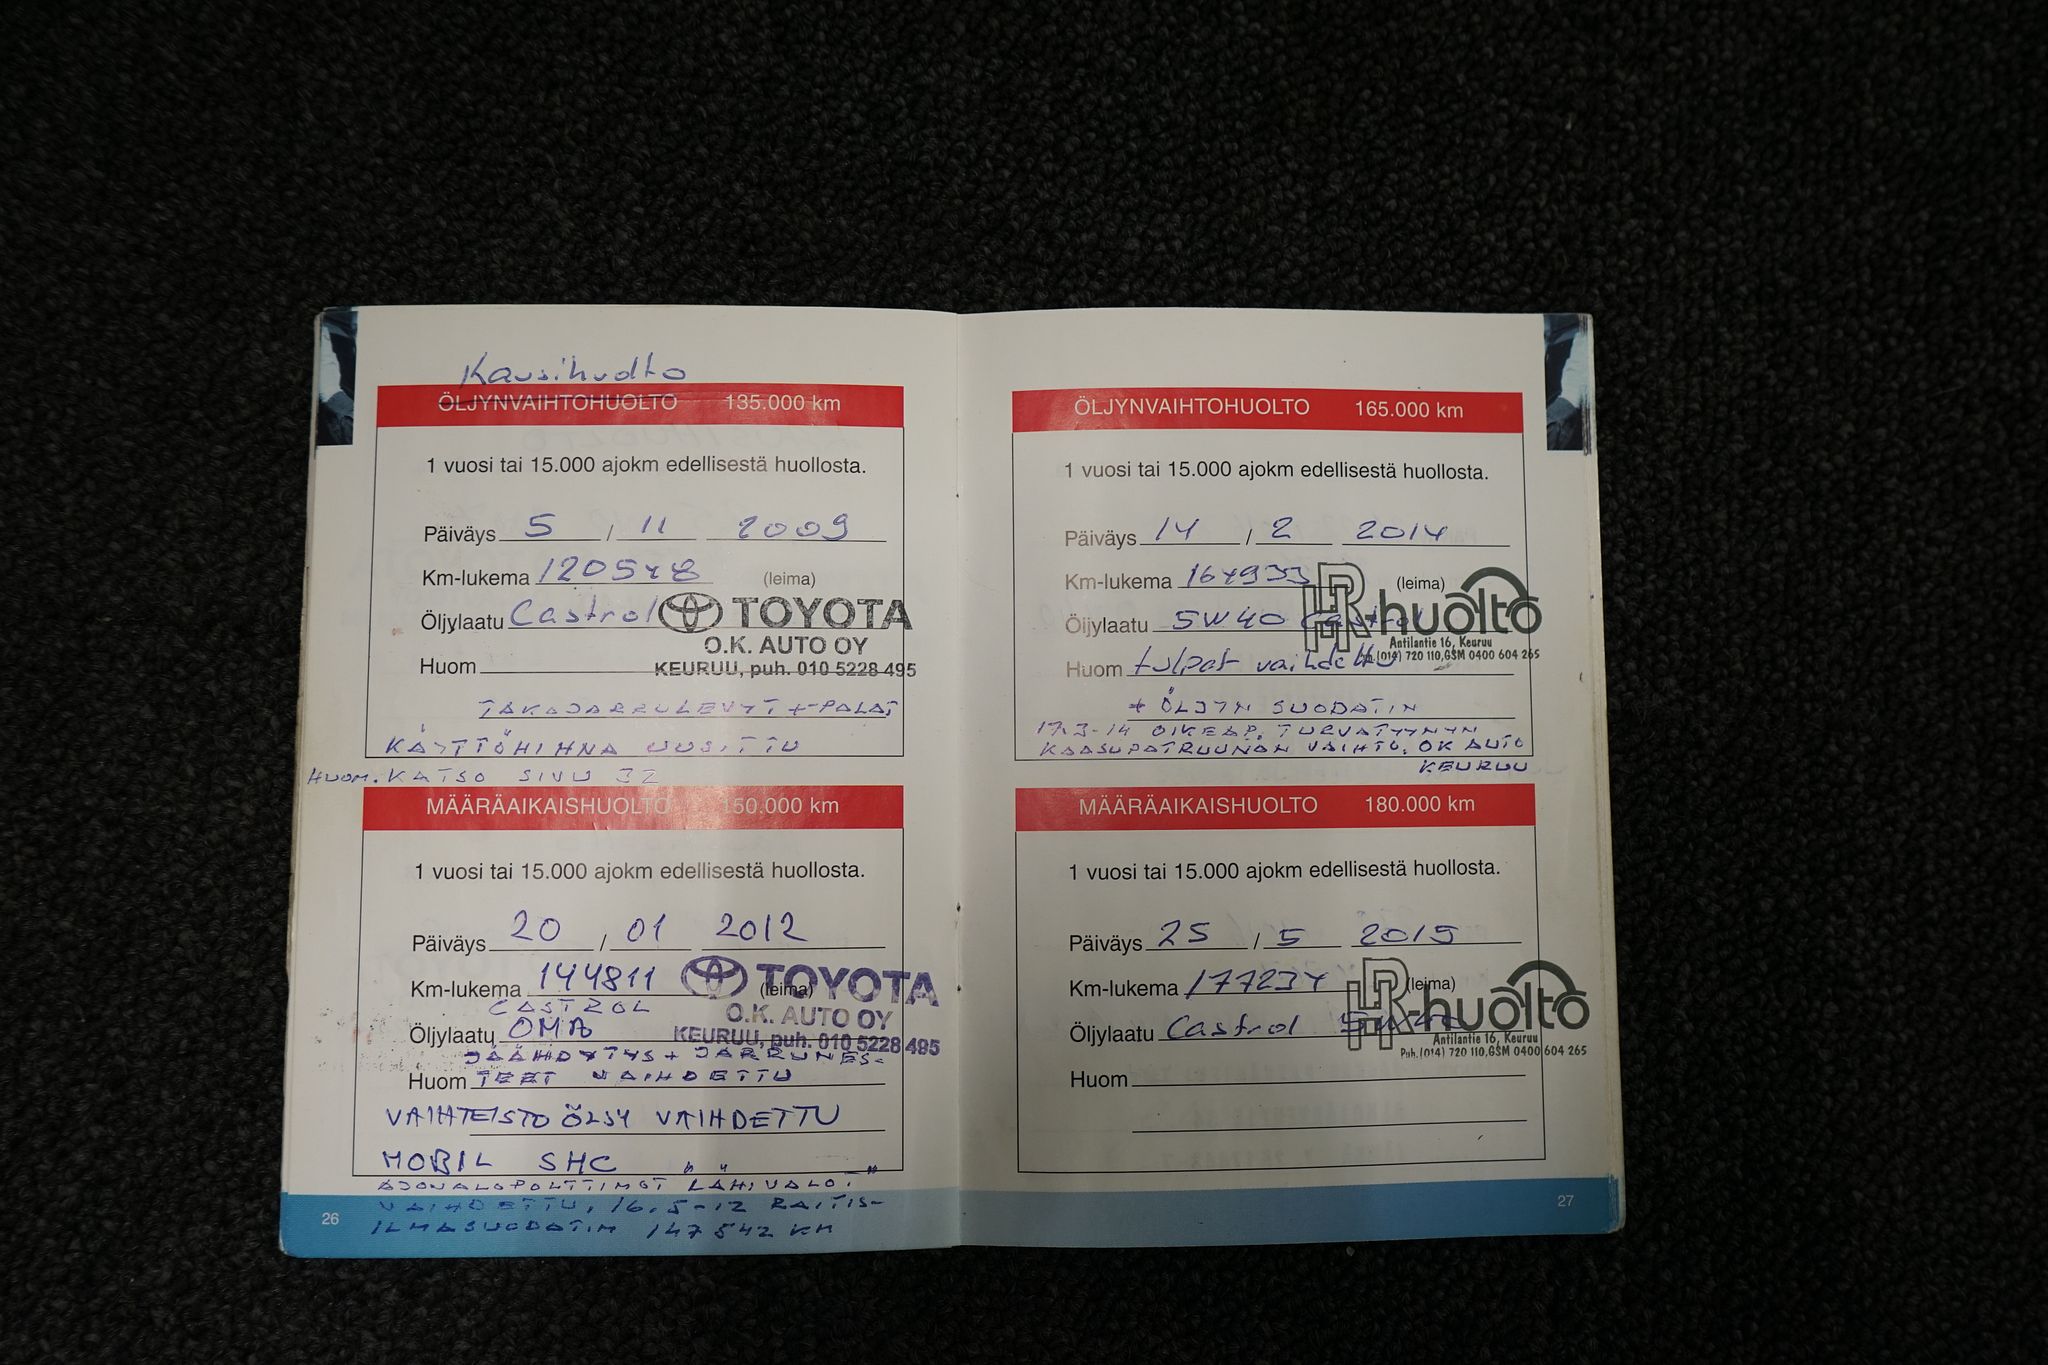 Kausihuolto
ÖLJYNVAIHTOHUOLTO 135.000 km
1 vuosi tai 15.000 ajokm edellisestä huollosta.
Päiväys 5 / 11 2009
Km-lukema 120548 (leima)
Öljylaatu Castrol TOYOTA
O.K. AUTO OY
Huom KEURUU, puh. 010 5228 495
TAKAJARRULEVYT + PALAT
KÄYTTÖHIHNA UUSITTU
HUOM. KATSO SIVU 32
MÄÄRÄAIKAISHUOLTO 150.000 km
1 vuosi tai 15.000 ajokm edellisestä huollosta.
Päiväys 20 / 01 2012
Km-lukema 144811 (leima) TOYOTA
CASTROL
O.K. AUTO OY
Öljylaatu OMA KEURUU, puh. 010 5228 495
JÄÄHDYTYS + JARRUNES-
Huom TEET VAIHDETTU
VAIHTEISTO ÖLJY VAIHDETTU
MOBIL SHC " "
AJOVALOPOLTTIMOT LÄHIVALOT "
VAIHDETTU, 16.5-12 RAITIS-
ILMASUODATIN 147542 KM
26
ÖLJYNVAIHTOHUOLTO 165.000 km
1 vuosi tai 15.000 ajokm edellisestä huollosta.
Päiväys 14 / 2 2014
Km-lukema 164933 (leima)
Öljylaatu 5W40 Castrol HR-huolto
Antilantie 16, Keuruu
Puh.(014) 720 110,GSM 0400 604 265
Huom tulpat vaihdettu
+ ÖLJYN SUODATIN
17.3-14 OIKEAP. TURVATYYNYN
KAASUPATRUUNAN VAIHTO. OK AUTO
KEURUU
MÄÄRÄAIKAISHUOLTO 180.000 km
1 vuosi tai 15.000 ajokm edellisestä huollosta.
Päiväys 25 / 5 2015
Km-lukema 177234 (leima)
Öljylaatu Castrol 5W40 HR-huolto
Antilantie 16, Keuruu
Puh.(014) 720 110,GSM 0400 604 265
Huom
27